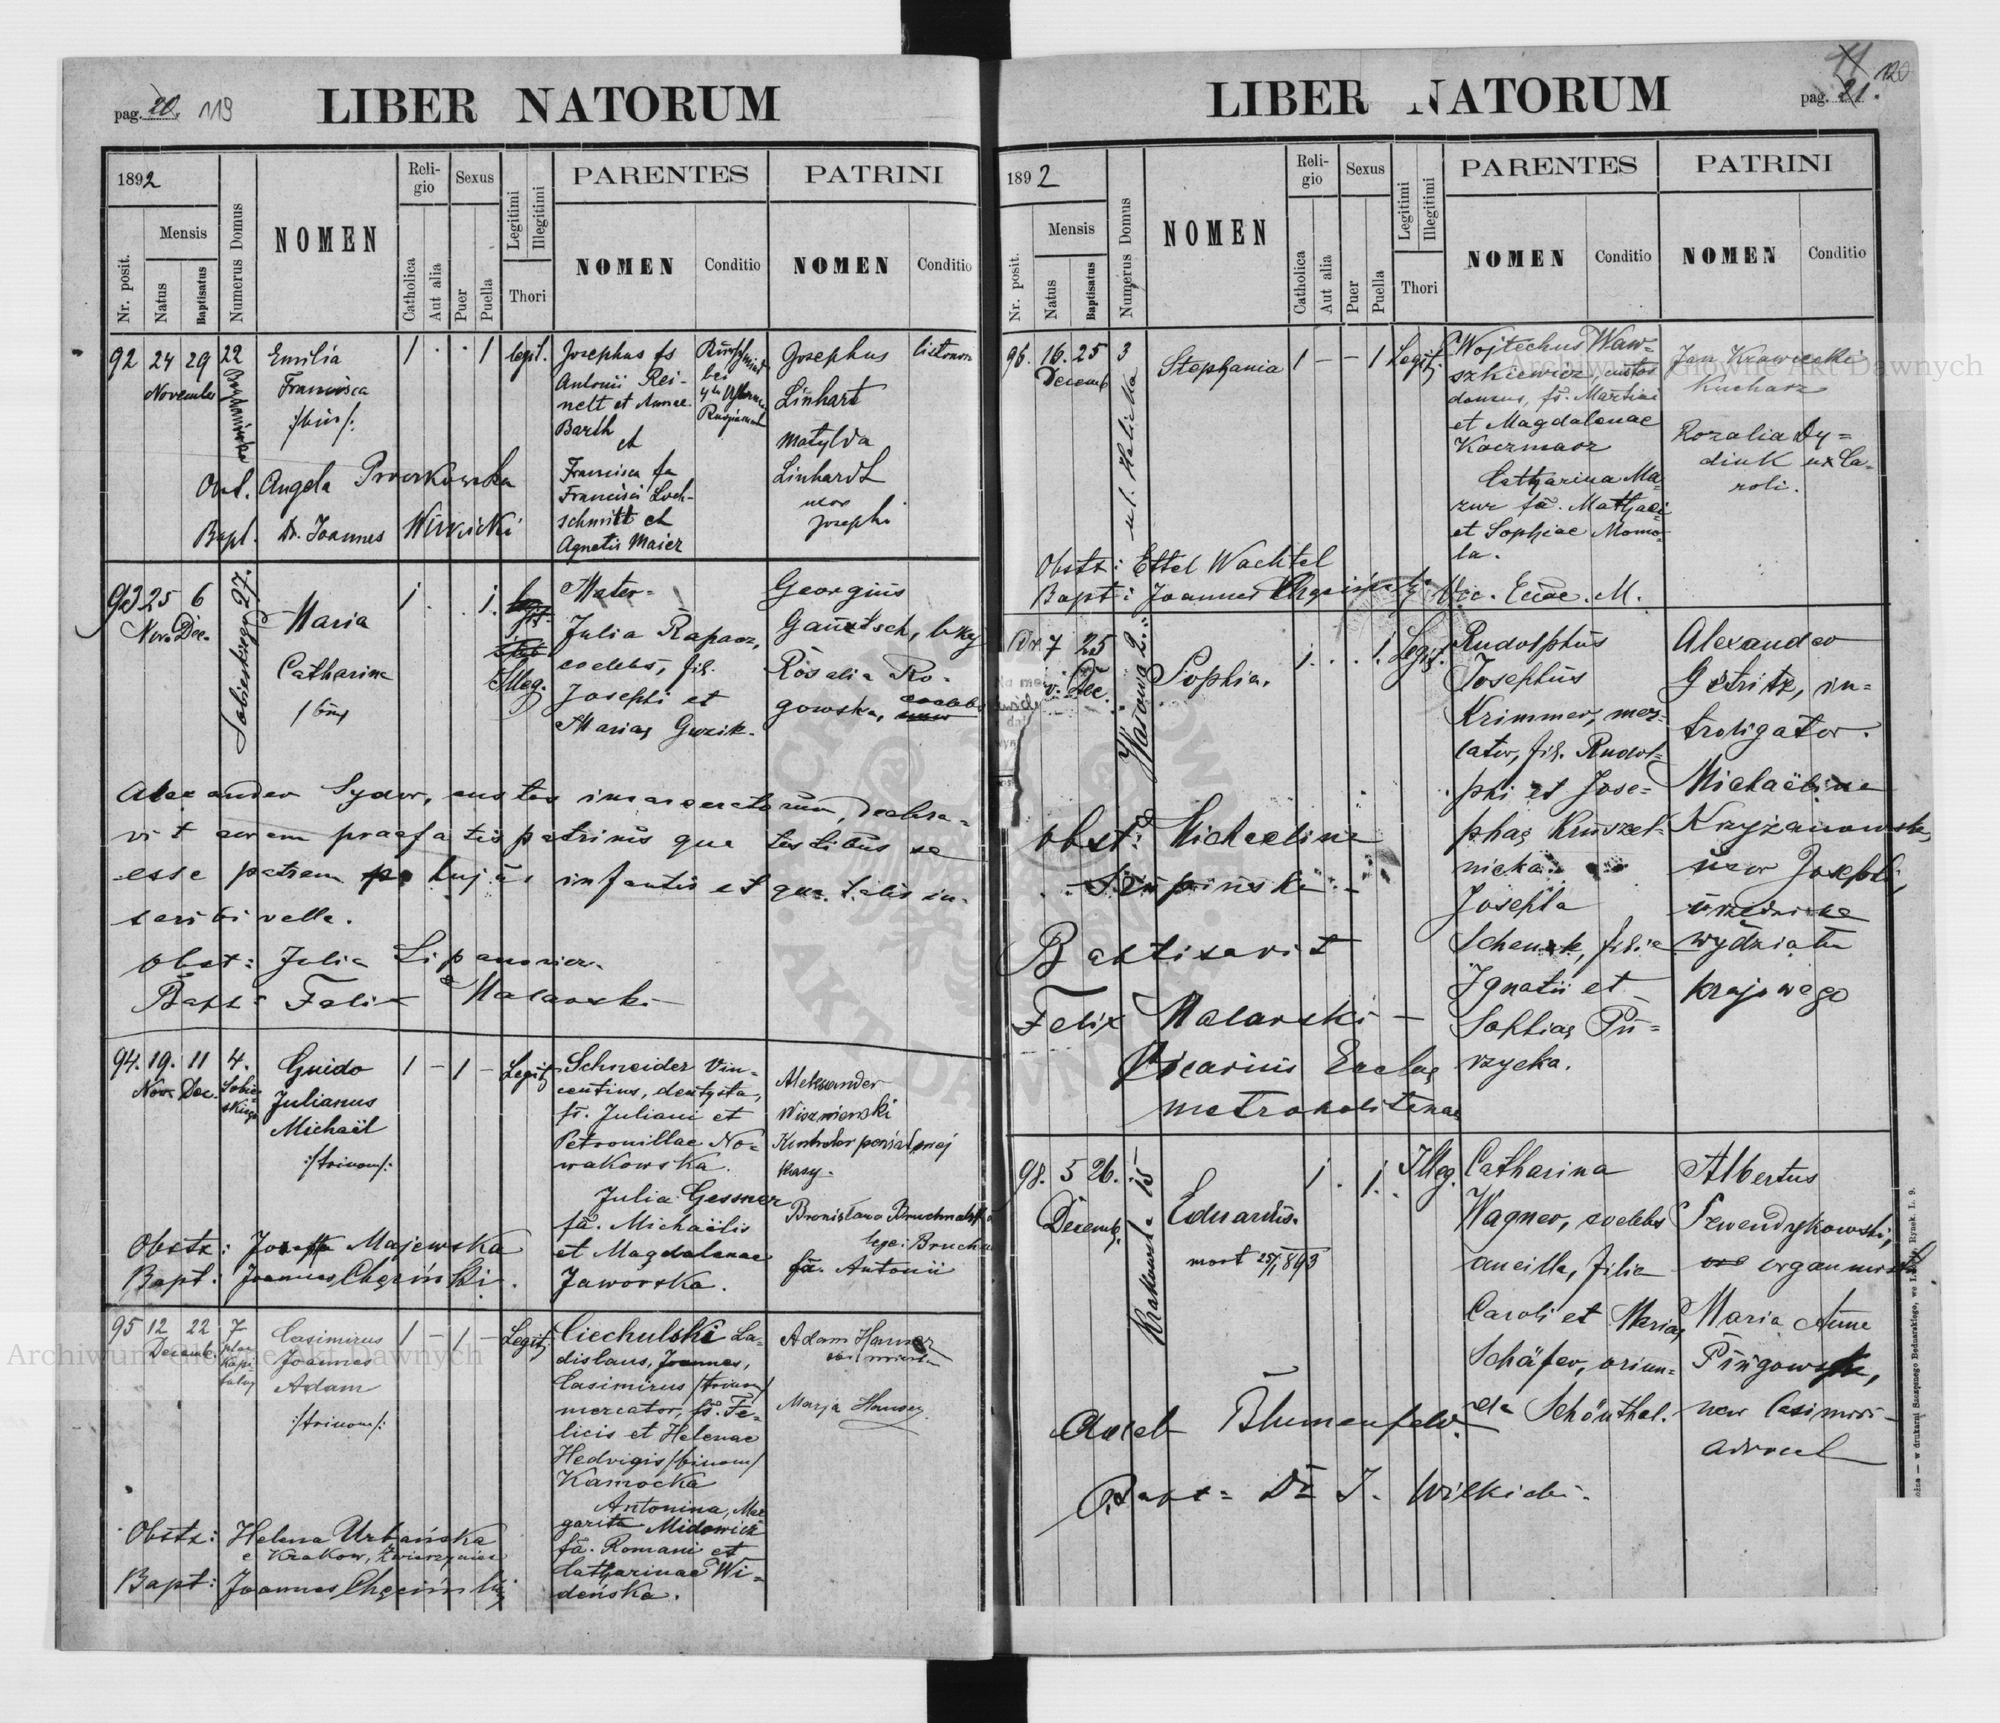 pag. 20. 119
LIBER NATORUM
1892
Mensis
Nr. posit.
Natus
Baptisatus
Numerus Domus
NOMEN
Religio
Catholica
Aut alia
Sexus
Puer
Puella
Legitimi
Illegitimi
Thori
PARENTES
NOMEN
Conditio
PATRINI
NOMEN
Conditio
92 24 29 22
November
Emilia
Francisca
/:bin:/
1 . . 1 legit.
Josephus fs
Antonii Rei-
nelt et Annae
Barth
et
Francisca fa
Francisci Loch-
schmitt et
Agnetis Maier
Josephus
Linhart
Matylda
Linhardt
uxor
Josephi
Obst. Angela
Bapt. Dr. Joannes Wilkicki
93 25 6
Nov. Dec.
27.
Maria
Catharina
/bin/
1 . . 1.
Illeg.
Mater-
Julia Rapacz,
coelebs, fil.
Josephi et
Mariae Guzik.
Georgius
Rosalia Ro-
gowska, coelebs
Alexander Sydor, custos incarceratorum, declara-
vit coram praefatis patrinis qua testibus se
esse patrem hujus infantis et qua talis in-
scribi velle.
Obst: Julia
Bapt: Felix Malarski
94. 19. 11 4.
Nov. Dec. Sobie-
skiego
Guido
Julianus
Michaël
:/trinom/:
1 - 1 - Legit.
Schneider Vin-
centius, dentysta,
fs. Juliani et
Petronillae No-
wakowska.
Julia Gessner
fa. Michaëlis
et Magdalenae
Jaworska.
Aleksander
Wiszniewski
Kontrolor
kasy.
Bronisława
lege: 
fa. Antonii
Obstx: Josefa Majewska
Bapt: Joannes Chęciński.
95 12 22 7
Decemb.
Casimirus
Joannes
Adam
:/trinom/:
1 - 1 - Legit.
Ciechulski La-
dislaus, Joannes,
Casimirus /trinom/
mercator, fs. Fe-
licis et Helenae
Hedvigis /binom/
Kamocka
Antonina, Mar
garita Midowicz
fa. Romani et
Catharinae Wi-
deńska.
Adam
Marja
Obstx: Helena Urbańska
e Krakow, Zwierzyniec
Bapt: Joannes Chęciński
pag. 21. 120
LIBER NATORUM
1892
Mensis
Nr. posit.
Natus
Baptisatus
Numerus Domus
NOMEN
Religio
Catholica
Aut alia
Sexus
Puer
Puella
Legitimi
Illegitimi
Thori
PARENTES
NOMEN
Conditio
PATRINI
NOMEN
Conditio
96. 16. 25 3
Decemb.
ul. Halicka
Stephania
1 - - 1 Legit.
Wojtechus Waw-
szkiewicz, custos
domus, fs. Martini
et Magdalenae
Kaczmarz
Catharina Ma-
zur fa. Mathaei
et Sophiae Momo-
la.
Jan Krawiecki
Kucharz
Rozalia Dy-
diuk ux Ca-
roli.
Obstx: Ettel Wachtel
Bapt: Joannes Chęciński Vic. Eccae. M.
7 25
Dec.
Wałowa 2.
Sophia.
1. . . 1. Legit.
Rudolphus
Josephus
Krimmer, mer-
cator, fil. Rudol-
phi et Jose-
phae Kruszel-
nicka
Josepha
Schenk, filia
Ignatii et
Sophiae Pu-
rzycka.
Alexander
Getritz, in-
troligator.
Michaëlina
Krzyżanowska,
uxor Josephi,
urzędnika
wydziału
krajowego
Obst: Michaelina
Baptisavit
Felix Malarski
Vicarius Ecclae
metropolitanae
98. 5 26. 15
Decemb.
Krakowsk.
Eduardus.
mort 25/1 893
1 . 1. Illeg.
Catharina
Wagner, coelebs
ancilla, filia
Caroli et Mariae
Schäfer, oriun-
da Schönthal.
Albertus
Szwendrykowski,
organmistrz
Maria Anna
Pingowska,
uxor Casimiri
advocat
Blumenfeld.
Bapt: Dr J. Wilkicki.
Archiwum Główne Akt Dawnych
Archiwum Główne Akt Dawnych